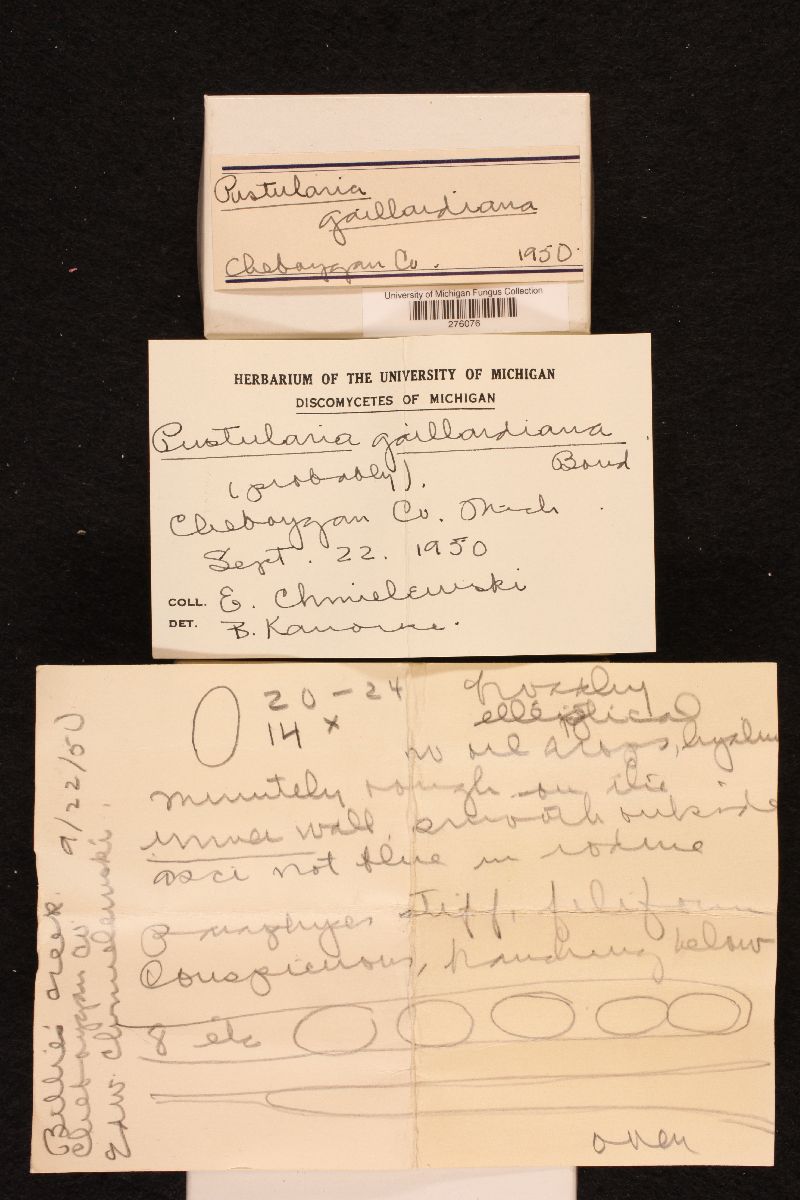 Pustularia
gaillardiana
Cheboygan Co. 1950.
University of Michigan Fungus Collection
276076
HERBARIUM OF THE UNIVERSITY OF MICHIGAN
DISCOMYCETES OF MICHIGAN
Pustularia gaillardiana
(probably). Boud
Cheboygan Co. Mich
Sept. 22. 1950
COLL. E. Chmielewski
DET. B. Kanouse.
20-24
14 x
elliptical
no oil drops, hyaline
minutely rough on the
inner wall, smooth outside
asci not blue in iodine
Paraphyses stiff, filiform
Conspicuous, branching below
8
over
Billies creek 9/22/50
Cheboygan Co.
Edw. Chmielewski.